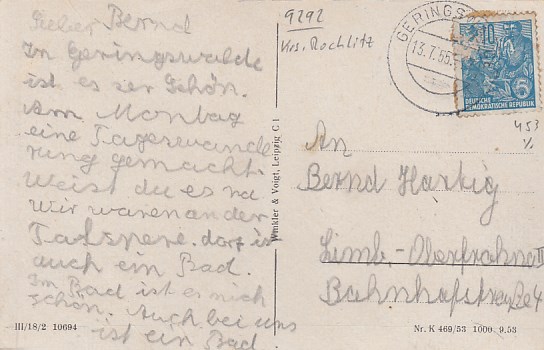 Lieber Bernd
In Geringswalde
ist es ser schön.
Am Montag
eine Tageswande
rung gemacht.
Weist du es wa
wir waren an der
Talspere. dort ist
auch ein Bad.
Im Bad ist es mich
schön. Auch bei uns
ist ein Bad
III/18/2 10694
Winkler & Voigt, Leipzig C 1
9292
Krs. Rochlitz
GERINGSW
13.7.55.
10
5
DEUTSCHE
DEMOKRATISCHE REPUBLIK
453
An
Bernd Hartig
Limb.-Oberfrohna II
Bahnhofstraße 4
Nr. K 469/53 1000 9.53